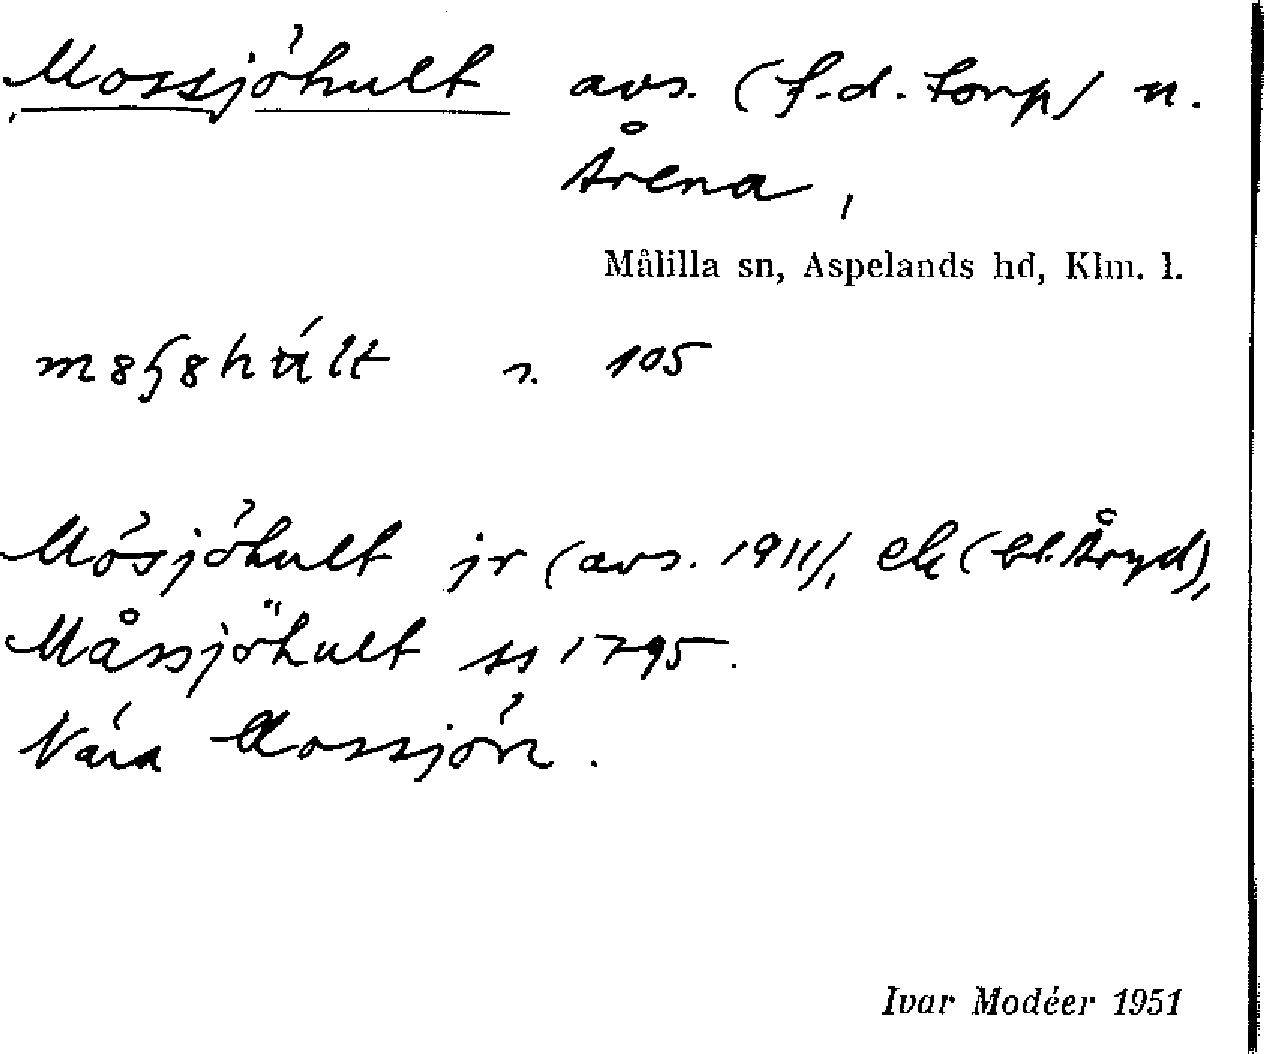 Mossjöhult avs. (f.d. torp) n.
Årena,
Målilla sn, Aspelands hd, Klm. l.
105
Mosjöhult jr (avs. 1911), ek (bl. Åryd),
Måssjöhult ss 1795.
Nära Mossjön.
Ivar Modéer 1951